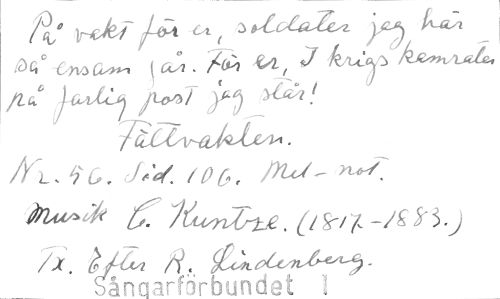 På vakt för er, soldater jag här
så ensam går. För er, I krigskamrater
på farlig post jag står!
Fältvakten.
Nr. 56. Sid. 106. Mel-not.
Musik C. Kuntze. (1817-1883.)
Tx. Efter R. Lindenberg.
Sångarförbundet 1